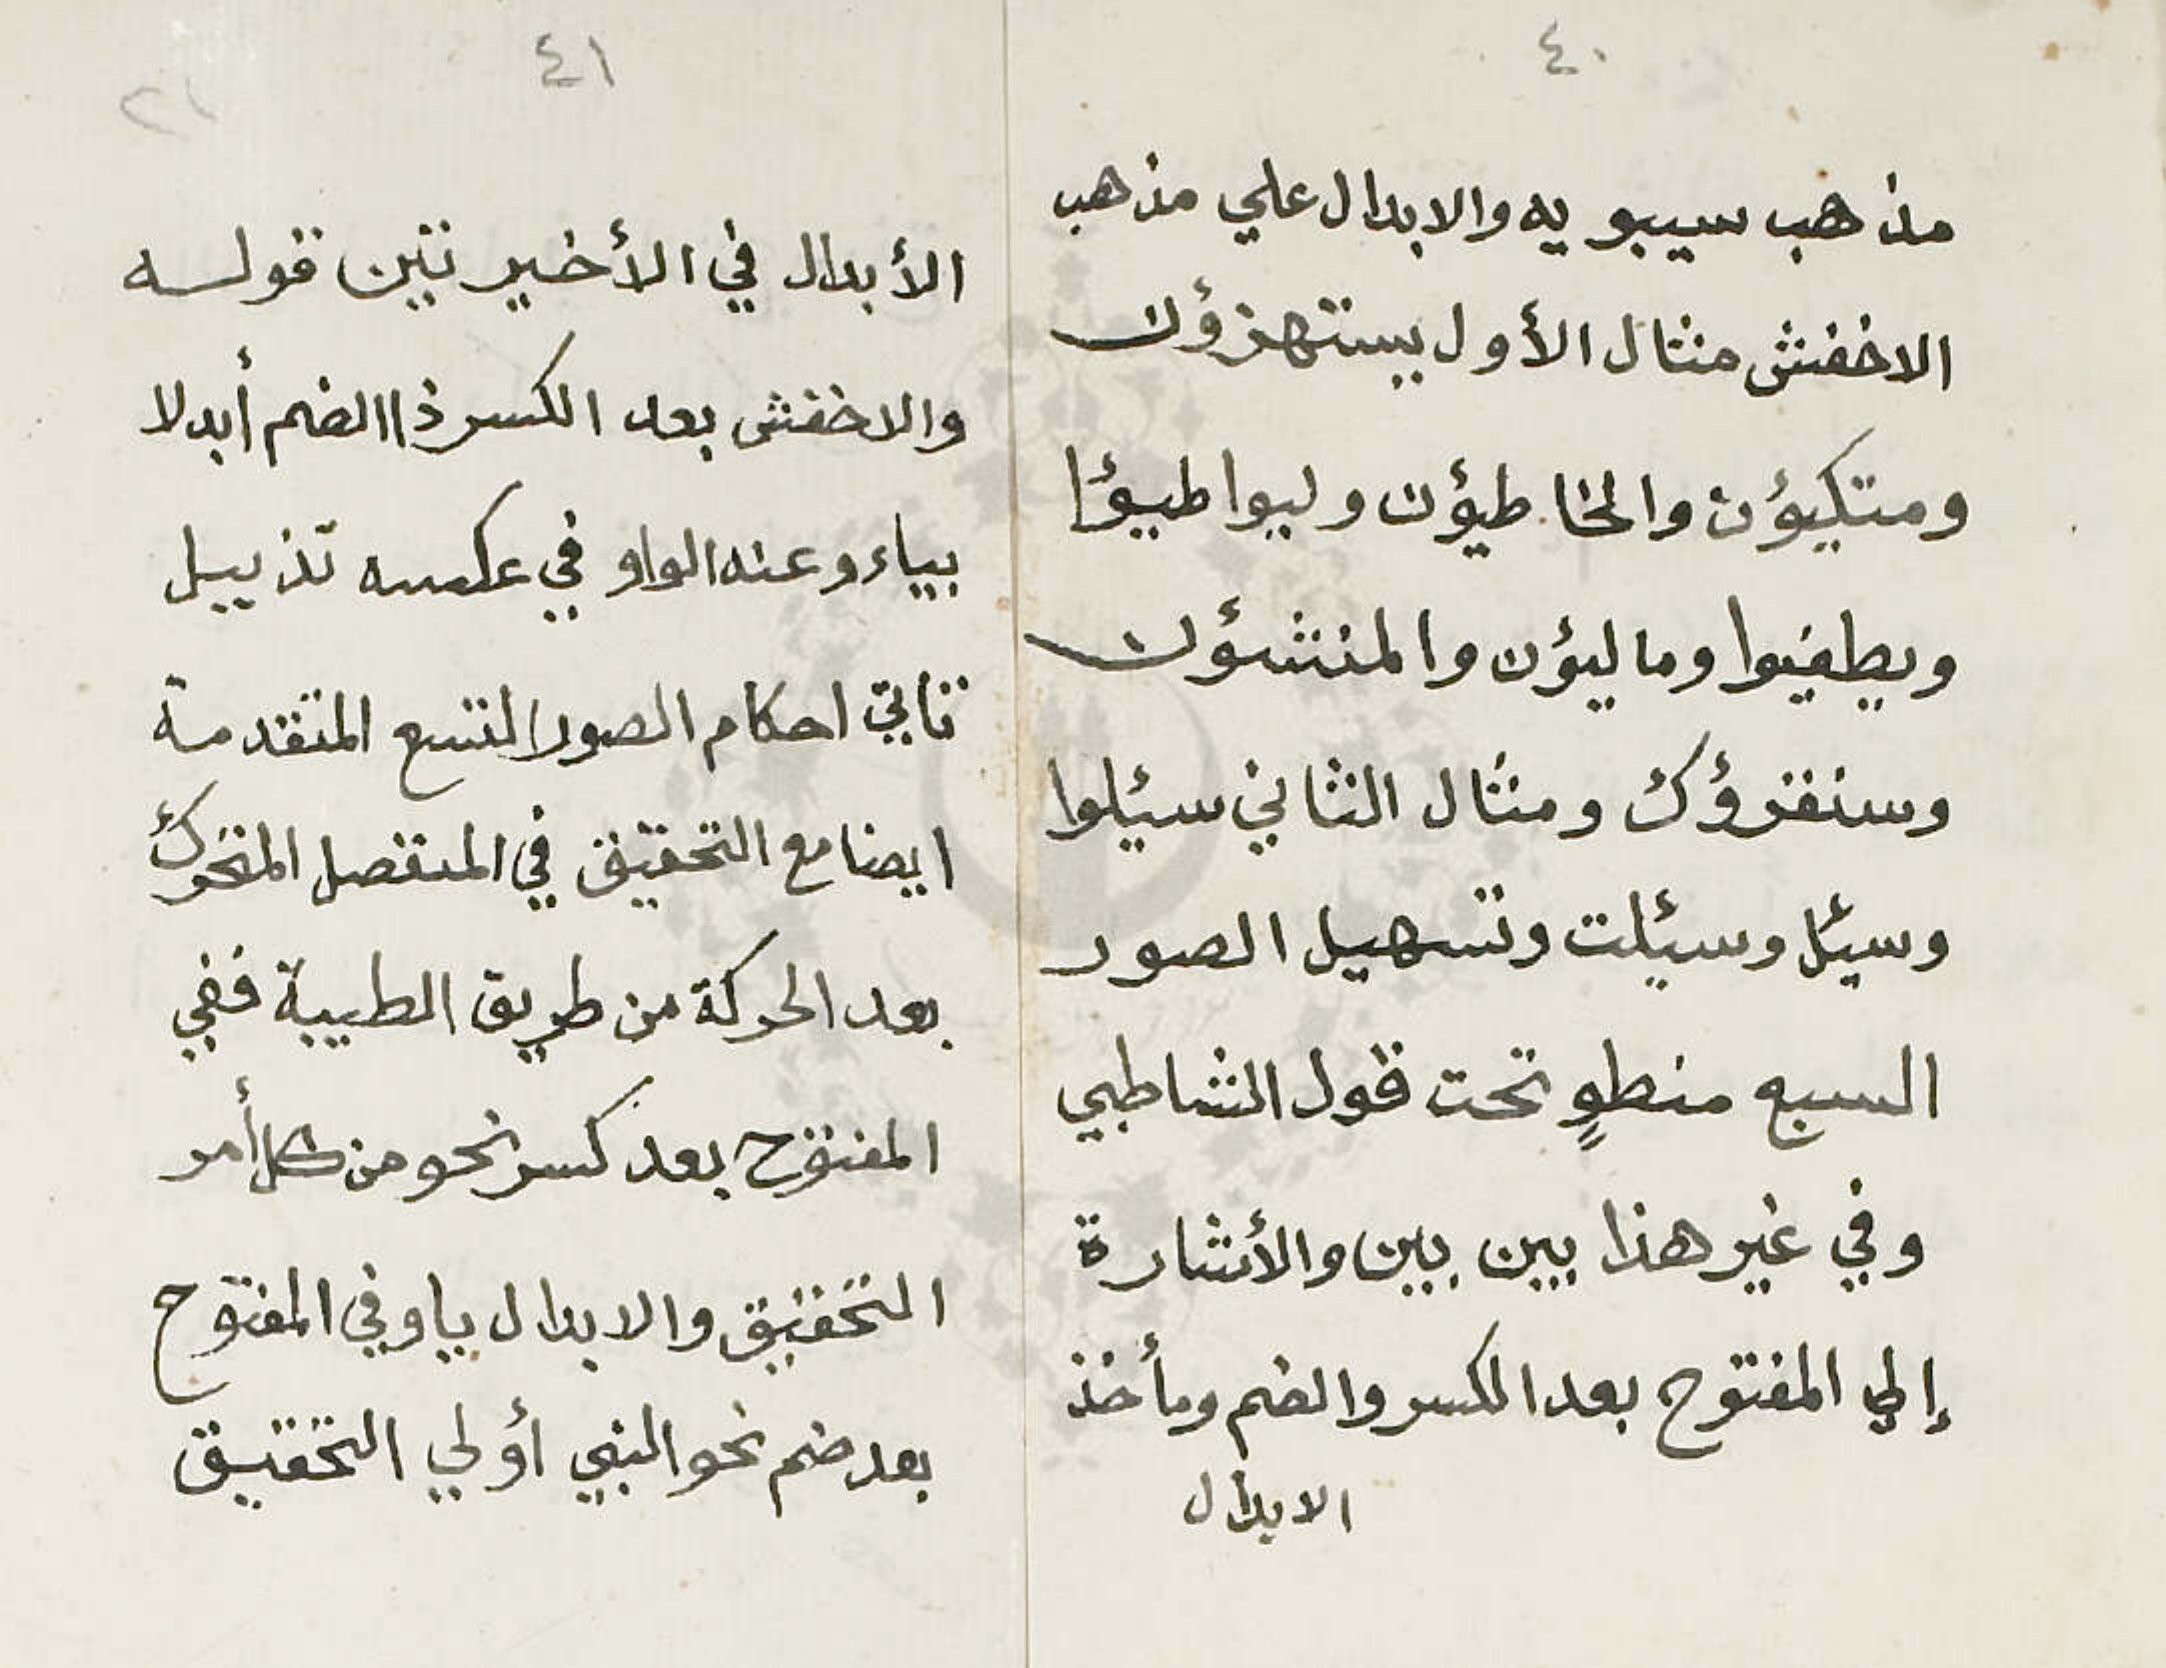 ٤٠
مذهب سيبويه والابدال علي مذهب
الاخفش مثال الأول يستهزؤن
ومتكيؤن والخاطيؤن وليواطيؤا
ويطفيوا وماليؤن والمنشؤن
وسنقرؤك ومثال الثاني سيئلوا
وسيئل وسيئلت وتسهيل الصور
السبع منطوٍ تحت قول الشاطبي
وفي غير هذا بين بين والأشارة
إلي المفتوح بعد الكسر والضم ومأخذ
الابدال
٤١
٢١
الأبدال في الأخيرتين قولـه
والاخفش بعد الكسر ذا الضم أبدلا
بياء وعنه الواو في عكسه تذييل
تاتي احكام الصور التسع المتقدمة
ايضا مع التحقيق في المنفصل المتحرك
بعد الحركة من طريق الطيبة ففي
المفتوح بعد كسر نحو من كل أمر
التحقيق والابدال يا وفي المفتوح
بعد ضم نحو النبي أولي التحقيق